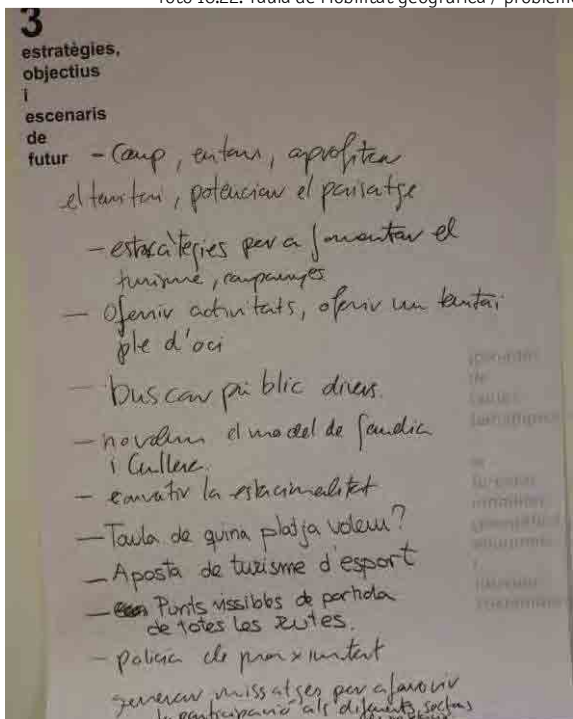 Foto 10.22. Taula de Mobilitat geogràfica /
3
estratègies,
objectius
i
escenaris
de
futur
- Camp, entorn, aprofitar
el territori, potenciar el paisatge
- estratègies per a fomentar el
turisme, campanyes
- Oferir activitats, oferir un
ple d'oci
- buscar públic divers.
- no volem el model de Gandia
i Cullera.
- la estacionalitat
- Taula de quina platja volem?
- Aposta de turisme d'esport
- Punts vissibles de partida
de totes les rutes.
- policia de proximitat
generar missatges per afavorir
la participació als diferents sectors